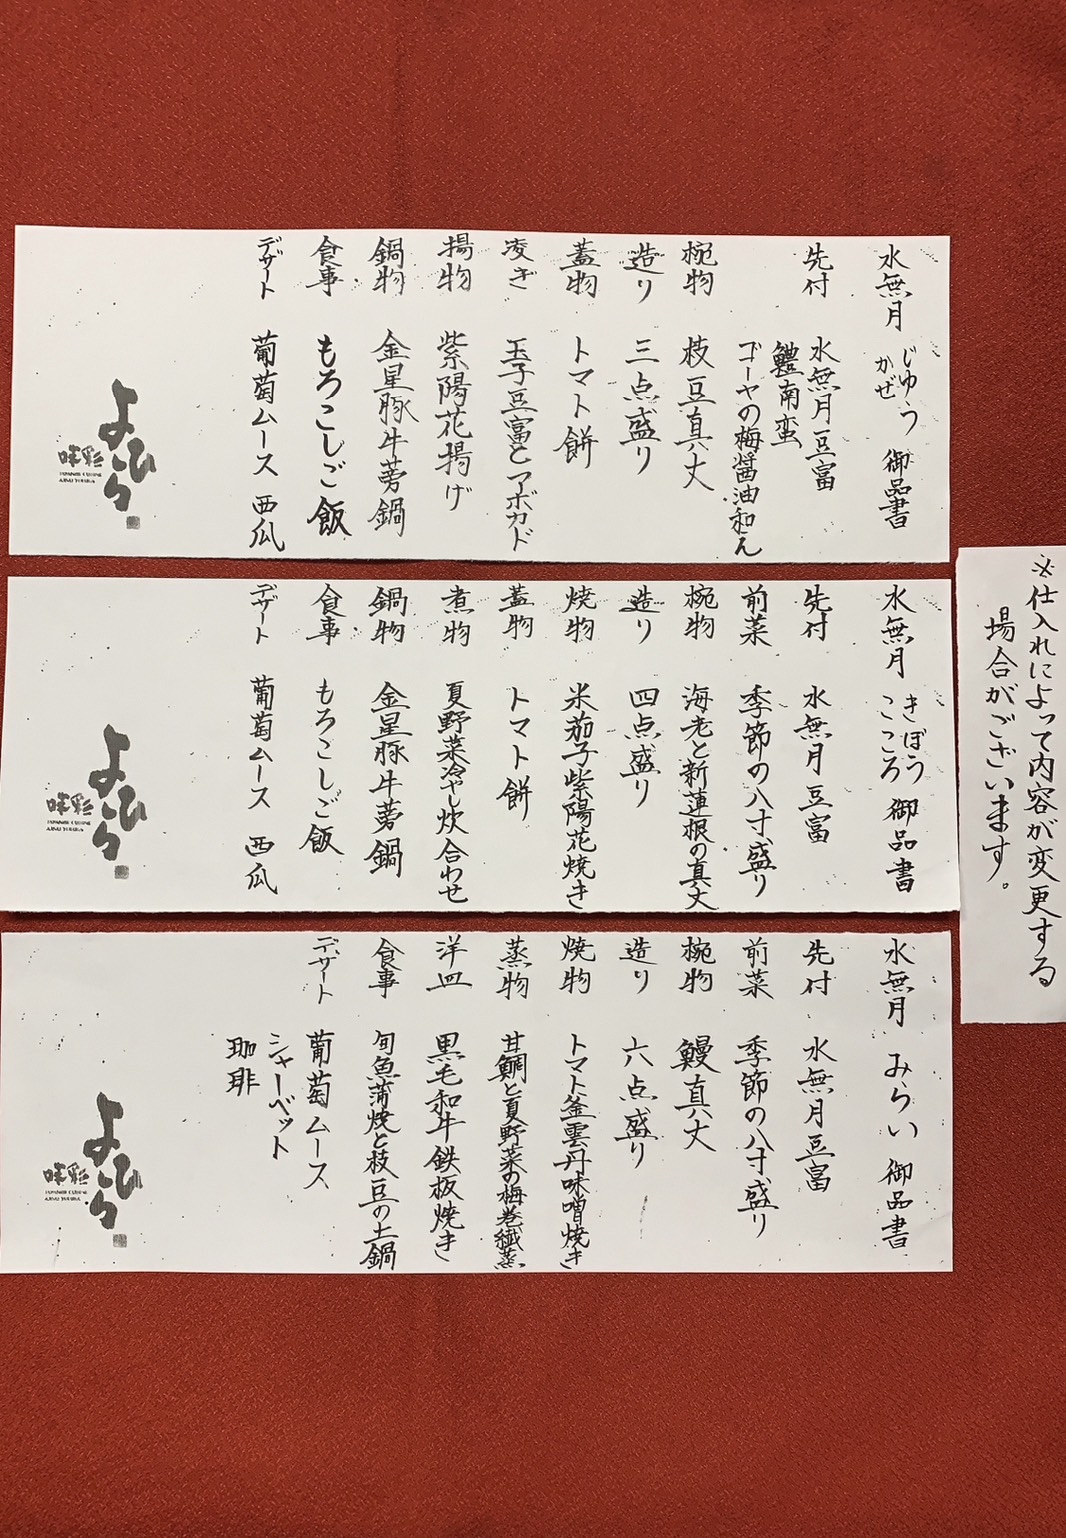 水無月 じゆう かぜ 御品書
先付 水無月豆富
鱧南蛮
ゴーヤの梅醤油和え
椀物 枝豆真丈
造り 三点盛り
蓋物 トマト餅
凌ぎ 玉子豆富とアボカド
揚物 紫陽花揚げ
鍋物 金星豚牛蒡鍋
食事 もろこしご飯
デザート 葡萄ムース 西瓜
よひら
彩和
JAPANESE CUISINE
AJISAI YOHIRA
水無月 きぼう こころ 御品書
先付 水無月豆富
前菜 季節の八寸盛り
椀物 海老と新蓮根の真丈
造り 四点盛り
焼物 米茄子紫陽花焼き
蓋物 トマト餅
煮物 夏野菜冷やし炊合わせ
鍋物 金星豚牛蒡鍋
食事 もろこしご飯
デザート 葡萄ムース 西瓜
よひら
水無月 みらい 御品書
先付 水無月豆富
前菜 季節の八寸盛り
椀物 鰻真丈
造り 六点盛り
焼物 トマト釜雲丹味噌焼き
蒸物 甘鯛と夏野菜の梅巻繊蒸
洋皿 黒毛和牛鉄板焼き
食事 旬魚蒲焼と枝豆の土鍋
デザート 葡萄ムース
シャーベット
珈琲
よひら
※仕入れによって内容が変更する
場合がございます。